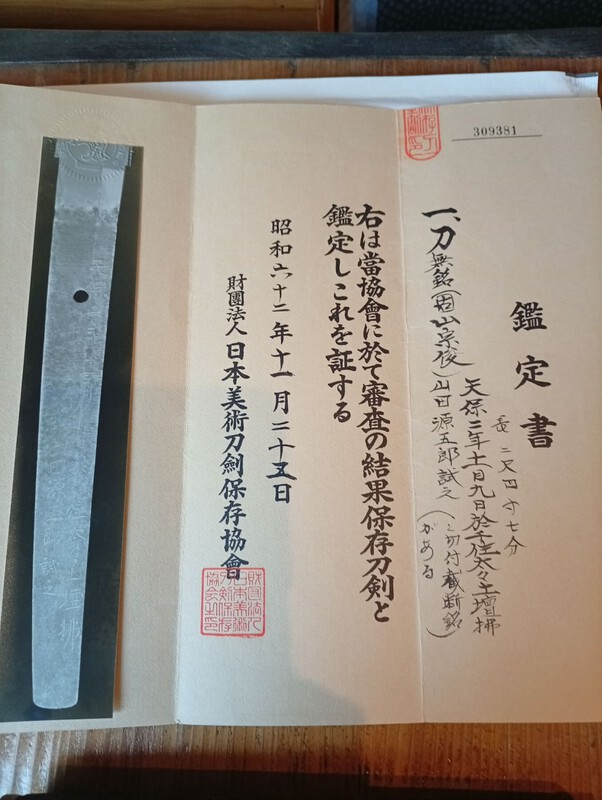 309381
鑑定書
長 二尺四寸七分
一、刀 無銘(固山宗俊)山田源五郎試之
天保三年十一月九日於千住太々土壇拂
(と切付截断銘
がある)
右は當協會に於て審査の結果保存刀剣と
鑑定しこれを証する
昭和六十二年十一月二十五日
財團法人日本美術刀劍保存協會
財団法人
日本美術
刀剣保存
協会之印